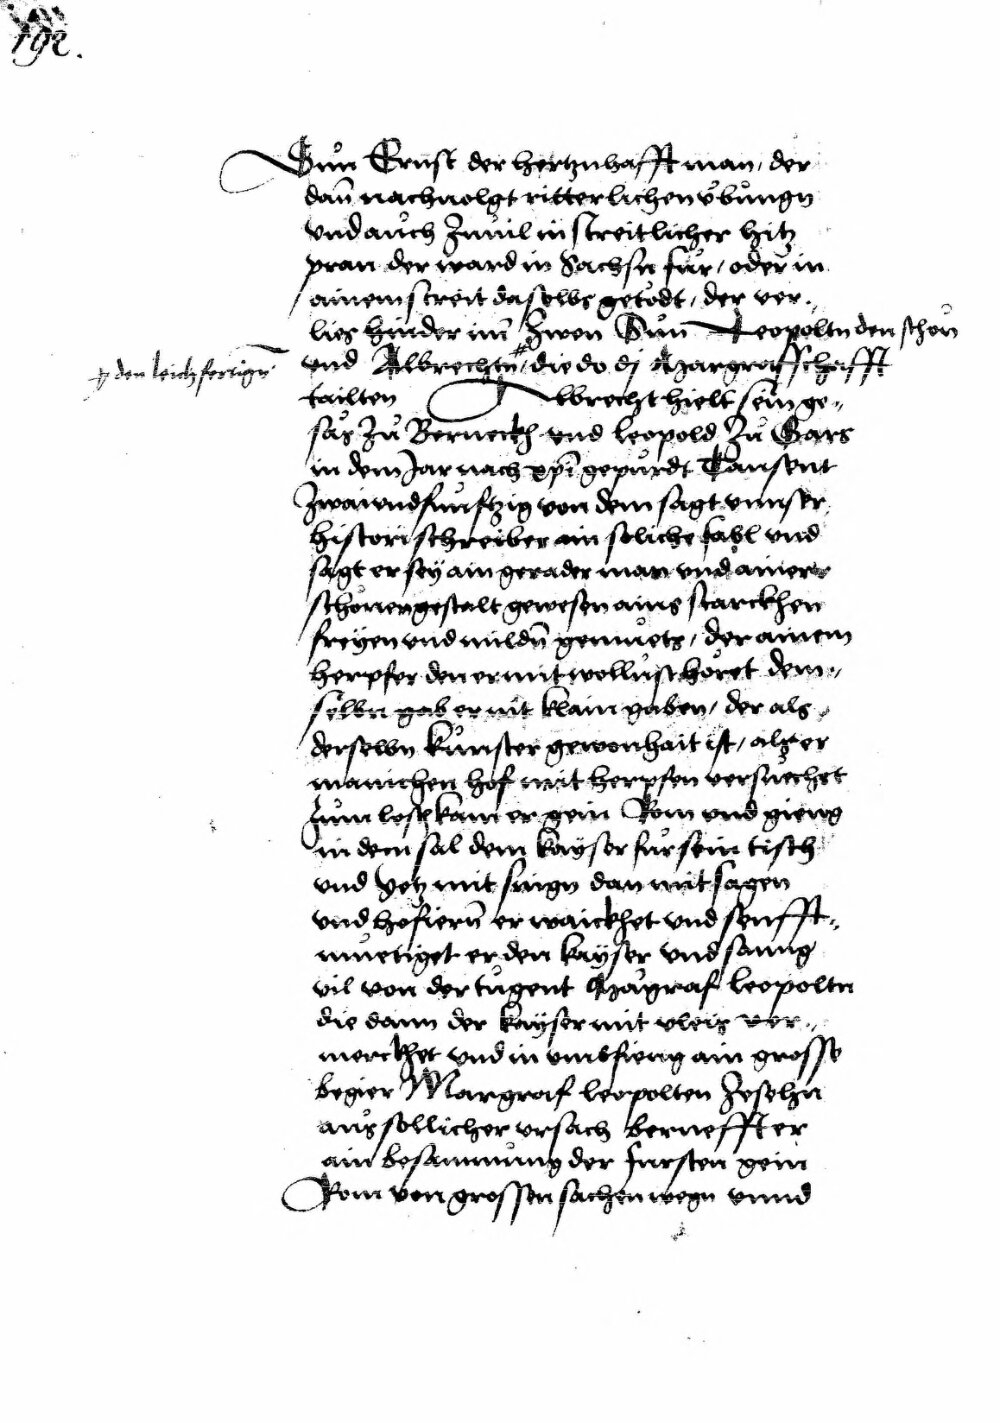 192.
Sun Ernst der hertznhafft man / der
dan̄ nachuolgt ritterlichen v̊bůngn
vnd auch Zuuil in streitlicher hitz
pran der ward in Sachsn für / oder in
ainem streit daselbs getödt / der ver„
lies hinder im̄ Zwen Sün Leopoltn den schön
vnd Albrechtn # die do dj Margraffschafft
# den leichfertign
tailten Albrecht hielt sein ge„
säs Zů Berneckh vnd leopold Zů Gars
in dem Jar nach xp̄i gepůrdt Tausent
Zwaiundfünftzig von dem sagt vnnser
histori schreiber ain soliche fabl vnd
sagt er seÿ ain gerader man vnd ainer
schönen gestalt gewesen ains starckhen
freÿen vnd mildn̄ gemuets / der ainem
herpfer den er mit wollust höret dem„
selbn gab er nit klain gaben / der als
derselbn künster gewonhait ist / als er
manichen hof mit herpfen versuechet
Zum lest kam er gein Rom vnd gieng
in den sal dem kaÿser für sein tisch
vnd yetz mit singn dan mit sagen
vnd hofiern̄ er waickhet vnd senfft„
muetiget er den kaÿser vnd sanng
vil von der tůgent Margraf leopoltn
die dann der kaÿser mit vleis ver„
merckhet vnd in vmbfieng ain grosse
begier Margraf leopolten Zesehn
aus sollicher vrsach beruefft er
ain besammung der fursten gein
Rom von grossen sachen wegn vnnd